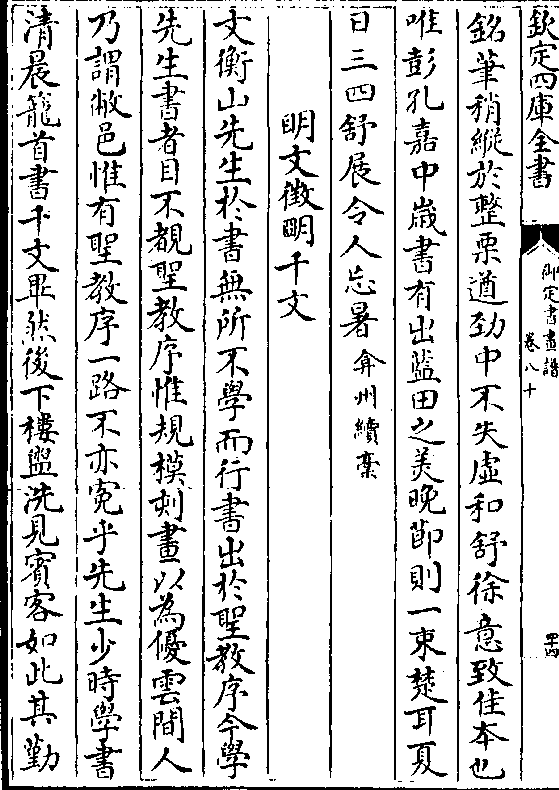 欽定四庫全書
御定書畫譜
卷八十
四十四
銘筆稍縱於整栗遒勁中不失虛和舒徐意致佳本也
唯彭孔嘉中嵗書有出藍田之美晚節則一束楚耳夏
日三四舒展令人忘暑弇州續稾
明文徵明千文
文衡山先生於書無所不學而行書出於聖教序今學
先生書者目不覩聖教序惟規模刻畫以為優雲間人
乃謂敝邑惟有聖教序一路不亦寃乎先生少時學書
清晨籠首書千文畢然後下樓盥洗見賓客如此其勤